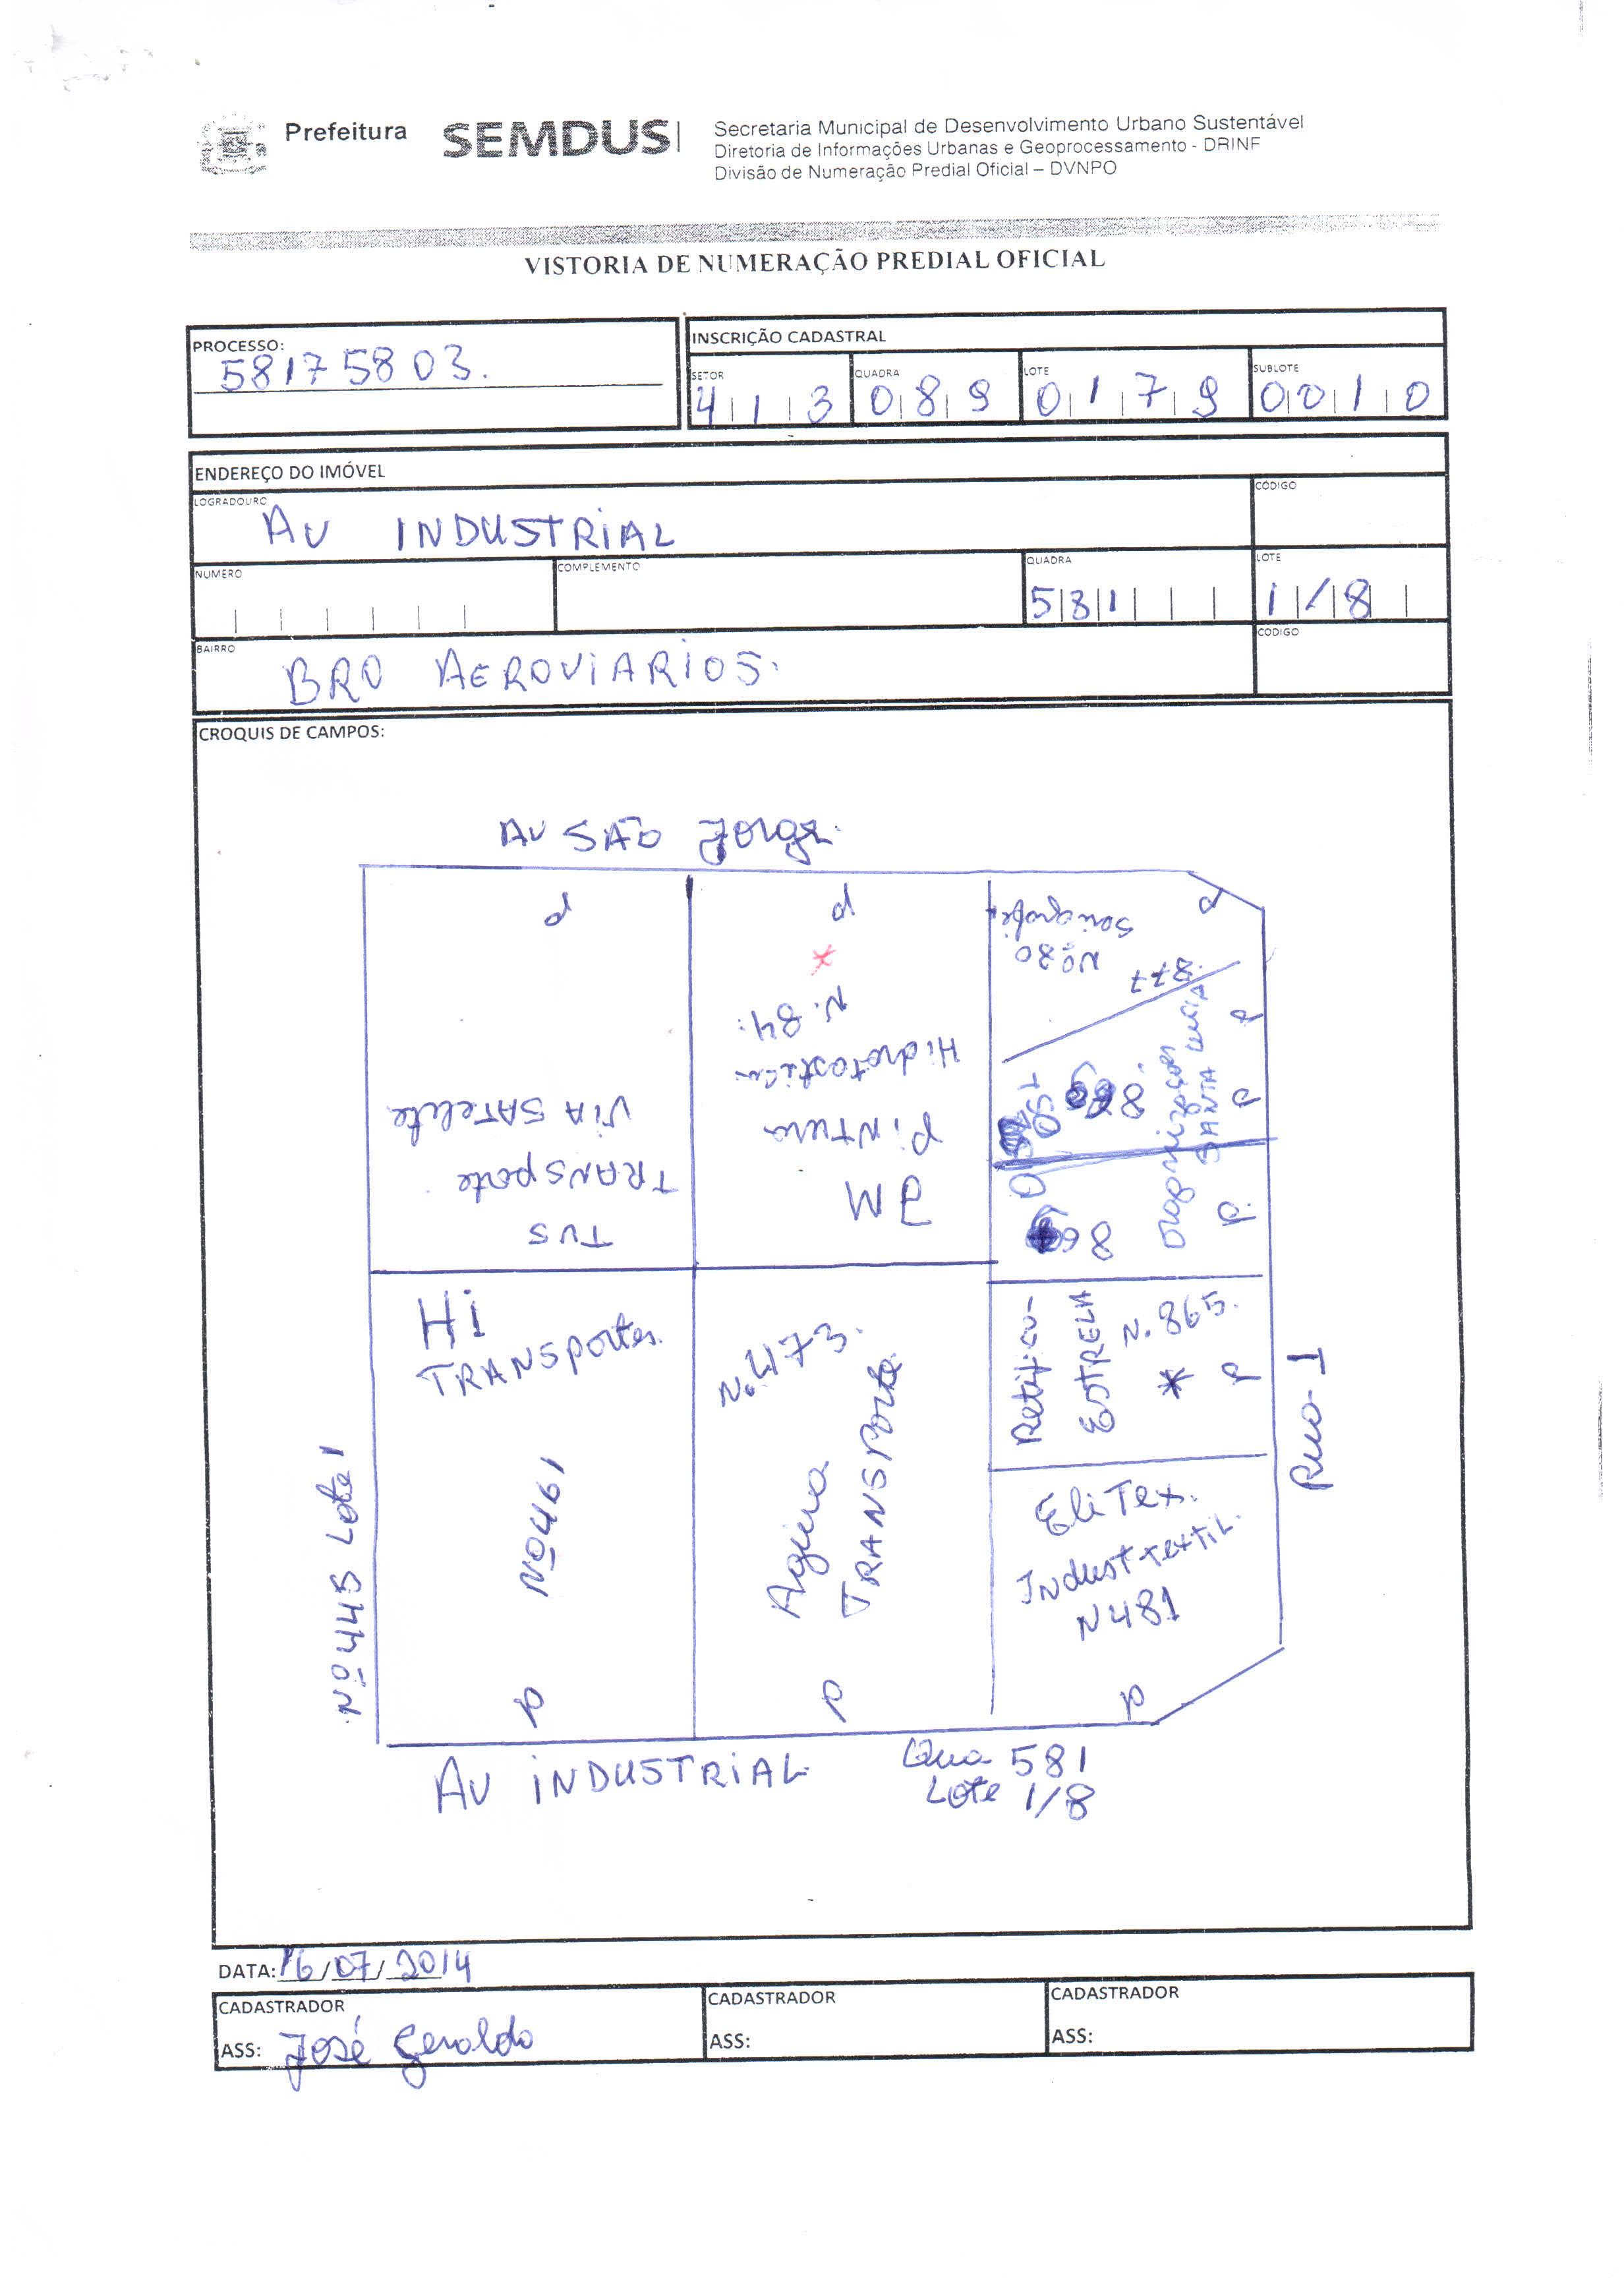 Prefeitura SEMDUS
Secretaria Municipal de Desenvolvimento Urbano Sustentável
Diretoria de Informações Urbanas e Geoprocessamento - DRINF
Divisão de Numeração Predial Oficial – DVNPO
VISTORIA DE NUMERAÇÃO PREDIAL OFICIAL
PROCESSO:
58175803.
INSCRIÇÃO CADASTRAL
SETOR QUADRA LOTE SUBLOTE
413 089 0179 0010
ENDEREÇO DO IMÓVEL
LOGRADOURO CÓDIGO
AV INDUSTRIAL
NUMERO COMPLEMENTO QUADRA LOTE
581 1/8
BAIRRO CODIGO
BRO AEROVIARIOS.
CROQUIS DE CAMPOS:
AV SÃO Jorge.
P
P
P
Serigrafia
Nº 80
877
N. 84.
Hidrotastica
Pintura
JM
VIA SATelite
TRANSporte
TVS
P
P
P.
Dragonizações
SANTA Lucia
869
Hi
TRANSportes.
Nº 461
P
Nº 445 Lote 1
No. 473.
Aguia
TRANSPorte
P
Retifica
ESTRELA
N. 865.
*
P
Rua I
EliTex.
Indust textil.
N 481
P
AV iNDUSTRiAL
Qua 581
Lote 1/8
DATA: 16/07/2014
CADASTRADOR
ASS: José Geraldo
CADASTRADOR
ASS:
CADASTRADOR
ASS: